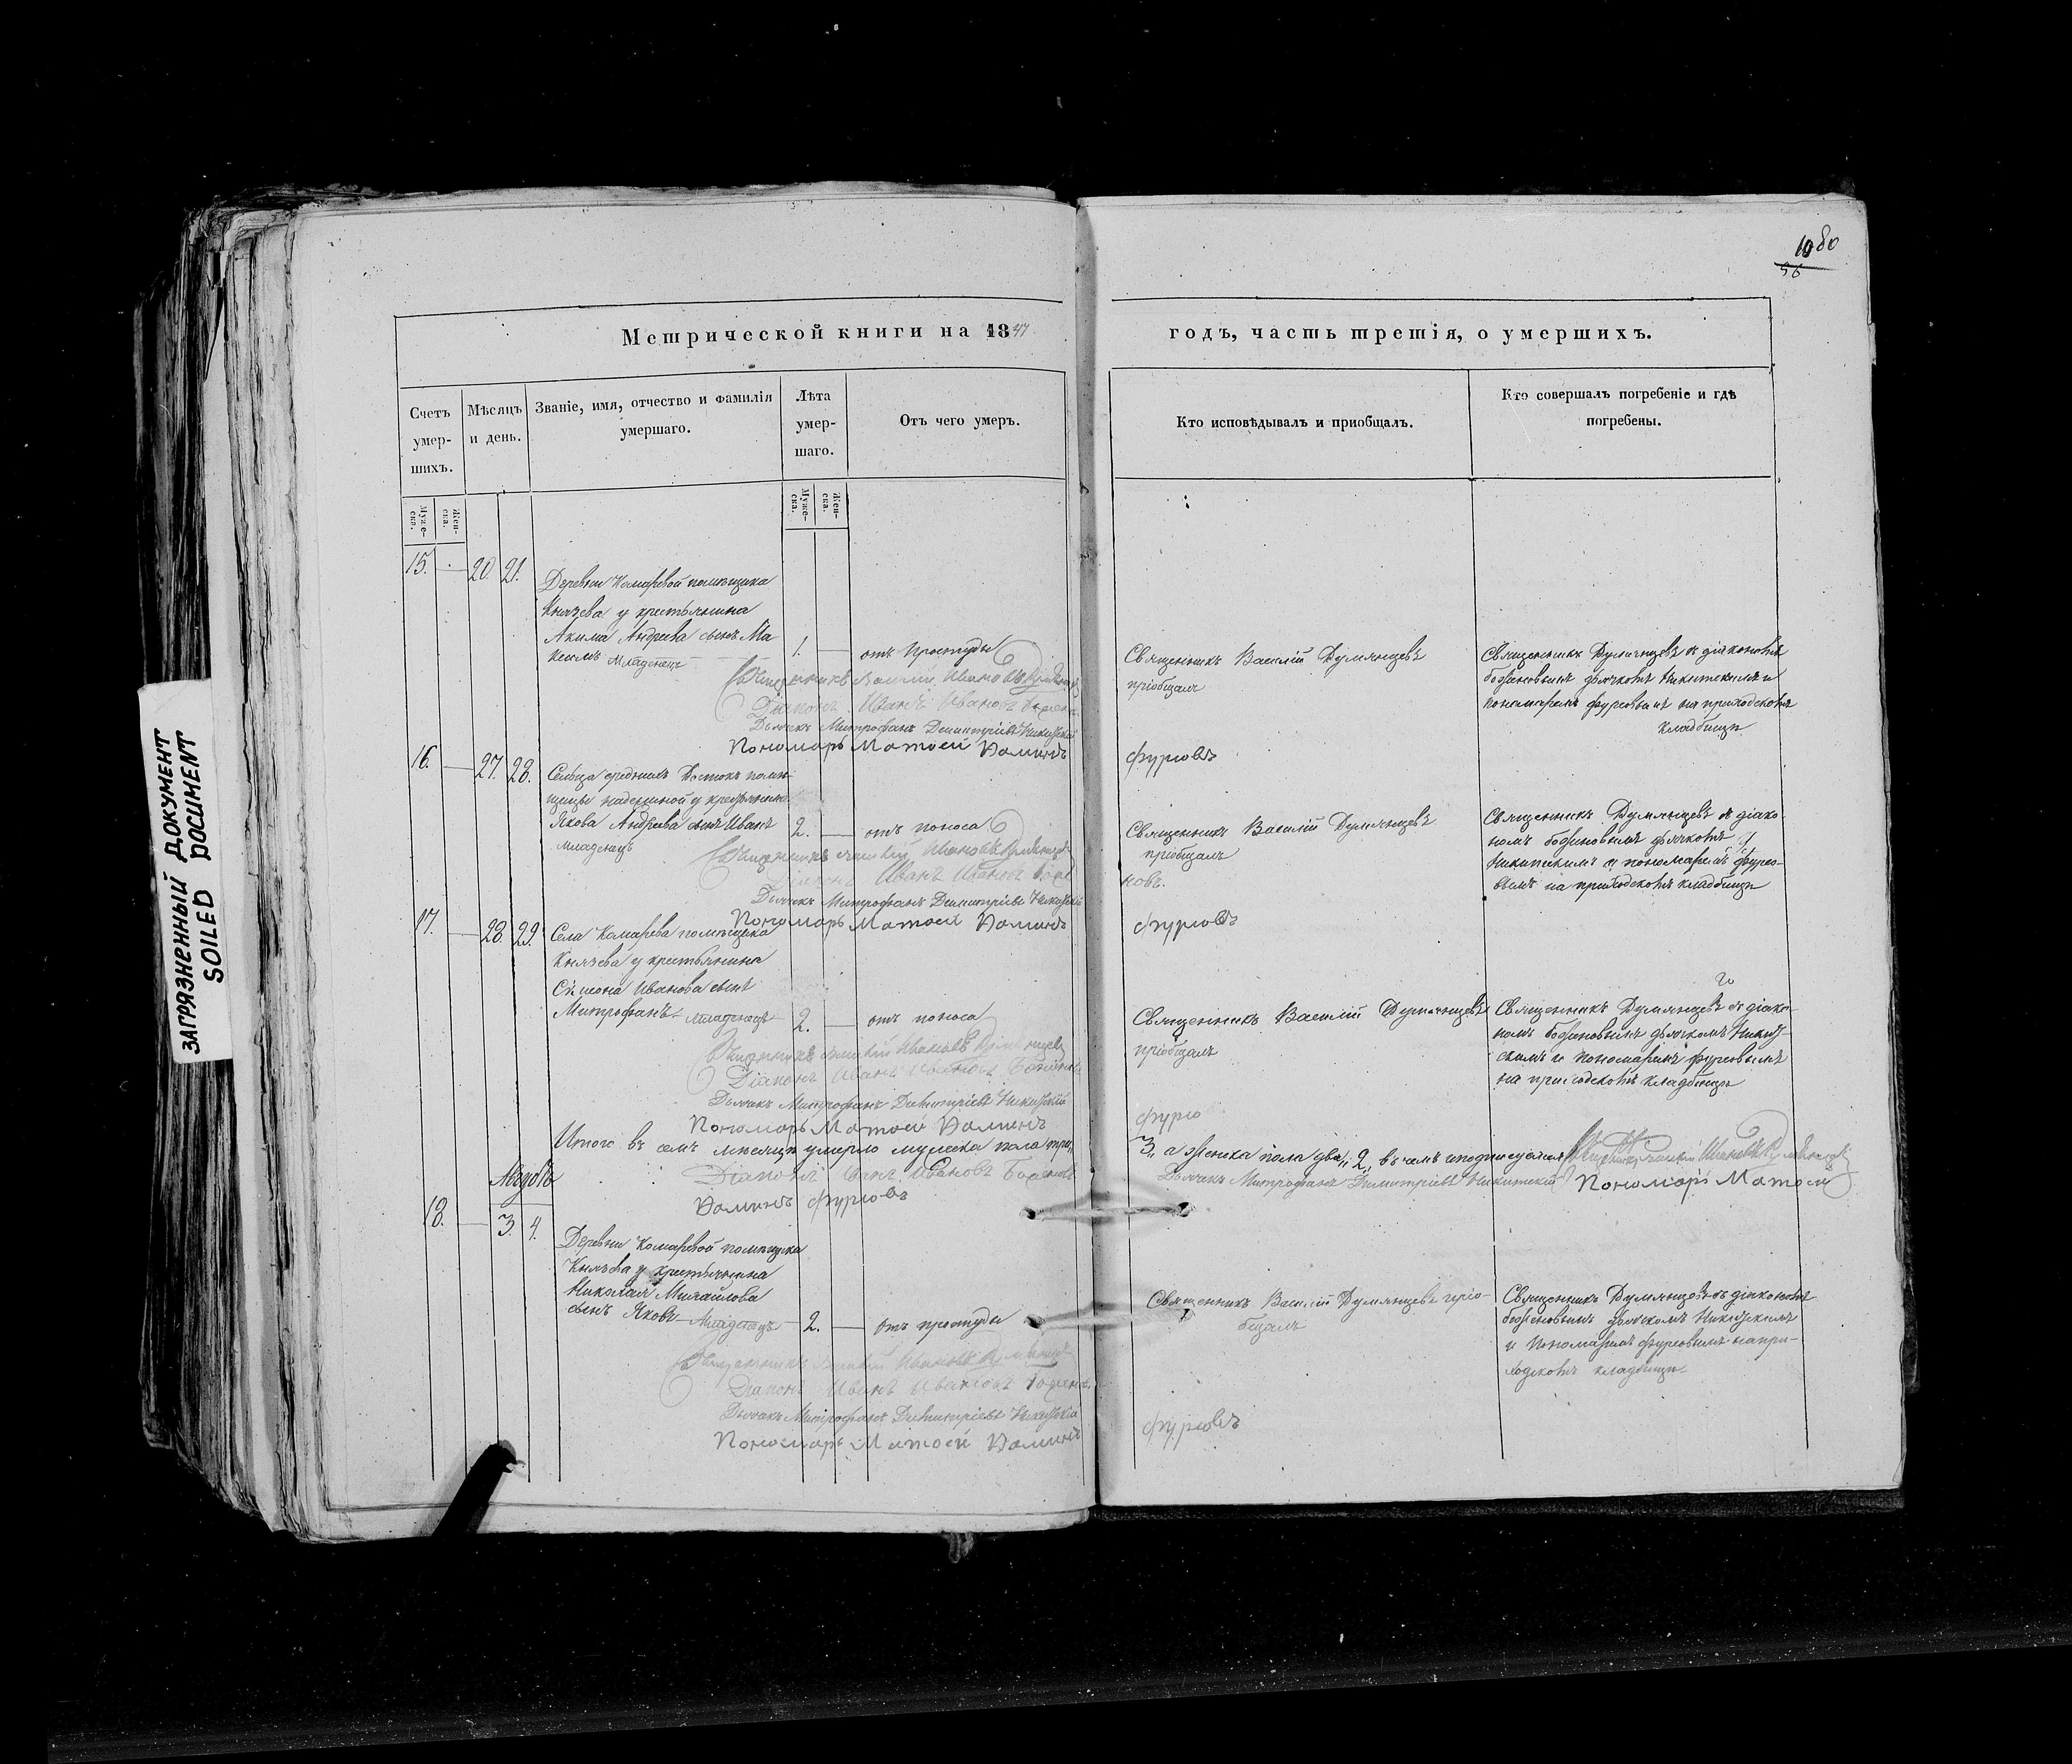 1080
56
Метрической книги на 1847
годъ, часть третія, о умершихъ.
Счетъ умер-шихъ.
Мѣсяцъ и день.
Званіе, имя, отчество и фамилія умершаго.
Лѣта умер-шаго.
Отъ чего умеръ.
Кто исповѣдывалъ и приобщалъ.
Кто совершалъ погребеніе и гдѣ погребены.
Муже-ска.
Жен-ска.
Муже-ска.
Жен-ска.
15. 20. 21.
Деревни Комаревой помѣщика
Князева у крестьянина
Акима Андреева сынъ Ма
ксимъ младенецъ
1.
отъ простуды
Священникъ Василій Думянцевъ
пріобщалъ
Священникъ Думянцевъ съ діакономъ
дьячкомъ Никитскимъ и
пономаремъ Фурсовымъ на приходскомъ
кладбищѣ
Священникъ Василій Ивановъ
Діаконъ Иванъ Ивановъ
Дьячекъ Митрофанъ Димитріевъ Никитскій
Пономарь Матвей
Фурсовъ
16. 27. 28.
Сельца помѣ-
щицы у крестьянина
Якова Андреева сынъ Иванъ
младенецъ
2.
отъ поноса
Священникъ Василій Думянцевъ
пріобщалъ
Священникъ Думянцевъ съ діако-
номъ дьячкомъ
Никитскимъ и пономаремъ Фурсо-
вымъ на приходскомъ кладбищѣ
Священникъ Василій Ивановъ
Діаконъ Иванъ Ивановъ
новъ.
Дьячекъ Митрофанъ Димитріевъ Никитскій
Пономарь Матвей
Фурсовъ
17. 28. 29.
Села Комарева помѣщика
Князева у крестьянина
Симеона Иванова сынъ
Митрофанъ младенецъ
2.
отъ поноса
Священникъ Василій Думянцевъ
пріобщалъ
Священникъ Думянцевъ съ діако-
номъ дьячкомъ Никит-
скимъ и пономаремъ Фурсовымъ
на приходскомъ кладбищѣ
Священникъ Василій Ивановъ
Діаконъ Иванъ Ивановъ
Дьячекъ Митрофанъ Димитріевъ Никитскій
Пономарь Матвей
Фурсо
Итого въ семъ мѣсяцѣ умерло мужеска пола три„
3„ а женска пола два„ 2„ въ чемъ и подписуемся Священникъ Василій Ивановъ
Діаконъ Иванъ Ивановъ
Дьячекъ Митрофанъ Димитріевъ Никитскій Пономарь Матвей
Фурсовъ
Августъ
18. 3. 4.
Деревни Комаревой помѣщика
Князева у крестьянина
Николая Михайлова
сынъ Яковъ младенецъ
2.
отъ простуды
Священникъ Василій Думянцевъ пріо-
бщалъ
Священникъ Думянцевъ съ діакономъ
дьячкомъ Никитскимъ
и пономаремъ Фурсовымъ на при-
ходскомъ кладбищѣ
Священникъ Василій Ивановъ
Діаконъ Иванъ Ивановъ
Дьячекъ Митрофанъ Димитріевъ Никитскій
Пономарь Матвей
Фурсовъ
ЗАГРЯЗНЕННЫЙ ДОКУМЕНТ
SOILED DOCUMENT